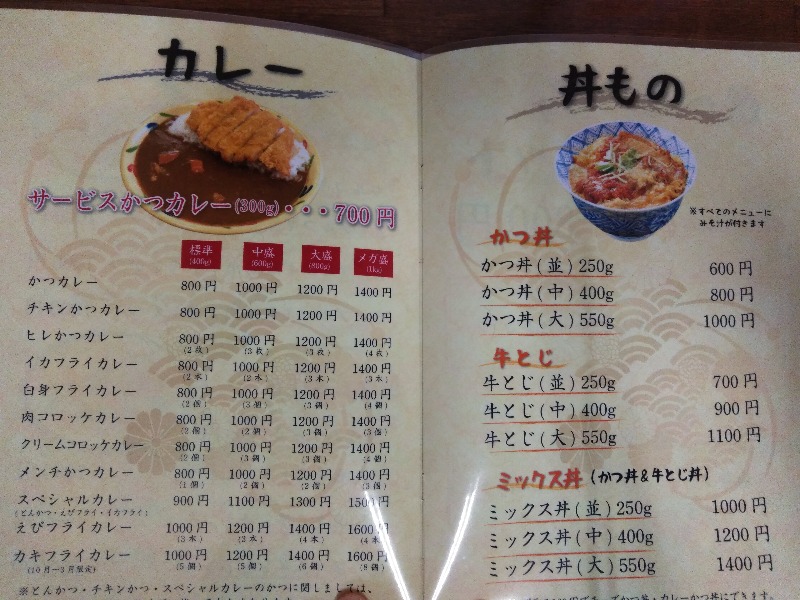 カレー
サービスかつカレー(300g)・・・700円
標準 中盛 大盛 メガ盛
(400g) (600g) (800g) (1kg)
かつカレー 800円 1000円 1200円 1400円
チキンかつカレー 800円 1000円 1200円 1400円
ヒレかつカレー 800円 1000円 1200円 1400円
(2枚) (3枚) (3枚) (4枚)
イカフライカレー 800円 1000円 1200円 1400円
(2本) (2本) (3本) (3本)
白身フライカレー 800円 1000円 1200円 1400円
(2個) (3個) (3個) (4個)
肉コロッケカレー 800円 1000円 1200円 1400円
(2個) (2個) (3個) (3個)
クリームコロッケカレー 800円 1000円 1200円 1400円
(2個) (3個) (3個) (4個)
メンチかつカレー 800円 1000円 1200円 1400円
(1個) (2個) (2個) (3個)
スペシャルカレー 900円 1100円 1300円 1500円
(とんかつ・えびフライ・イカフライ)
えびフライカレー 1000円 1200円 1400円 1600円
(3本) (3本) (4本) (4本)
カキフライカレー 1000円 1200円 1400円 1600円
(10月〜3月限定) (5個) (5個) (6個) (8個)
※とんかつ・チキンかつ・スペシャルカレーのかつに関しましては、
丼もの
※すべてのメニューに
みそ汁が付きます
かつ丼
かつ丼(並)250g 600円
かつ丼(中)400g 800円
かつ丼(大)550g 1000円
牛とじ
牛とじ(並)250g 700円
牛とじ(中)400g 900円
牛とじ(大)550g 1100円
ミックス丼(かつ丼&牛とじ丼)
ミックス丼(並)250g 1000円
ミックス丼(中)400g 1200円
ミックス丼(大)550g 1400円
かつ丼・カレーかつ丼にできます。